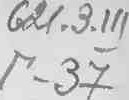 621.3.111
Г-37